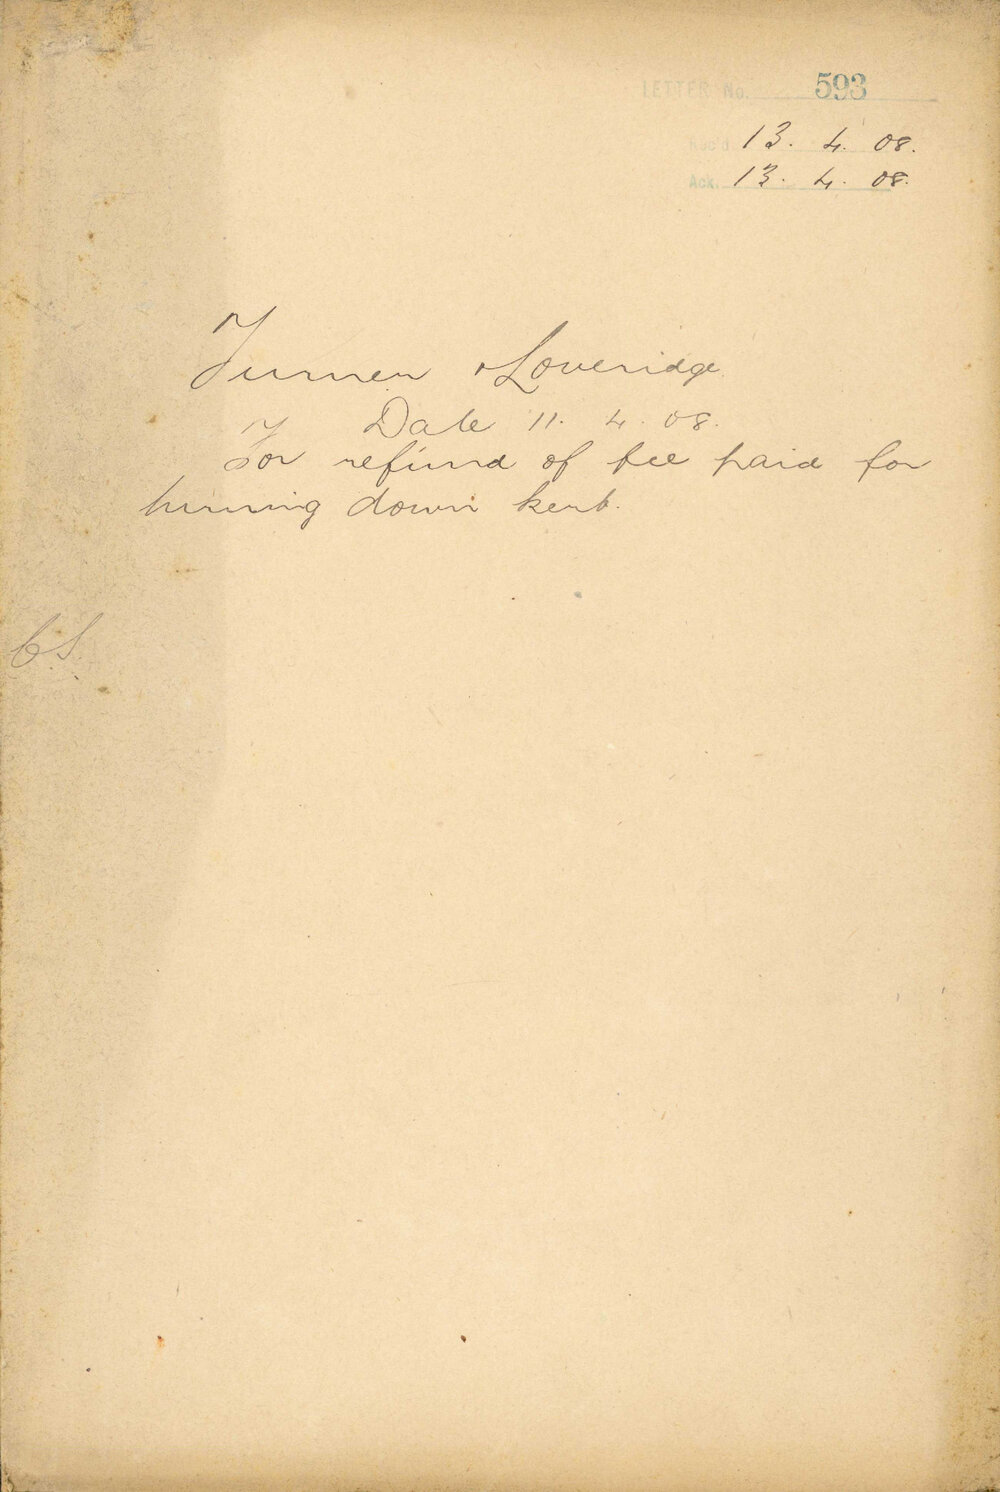 LETTER No. 593
Rec'd 13. 4. 08.
Ack. 13. 4. 08.
Turner & Loveridge
Date 11. 4. 08.
For refund of fee paid for
turning down kerb.
CS.